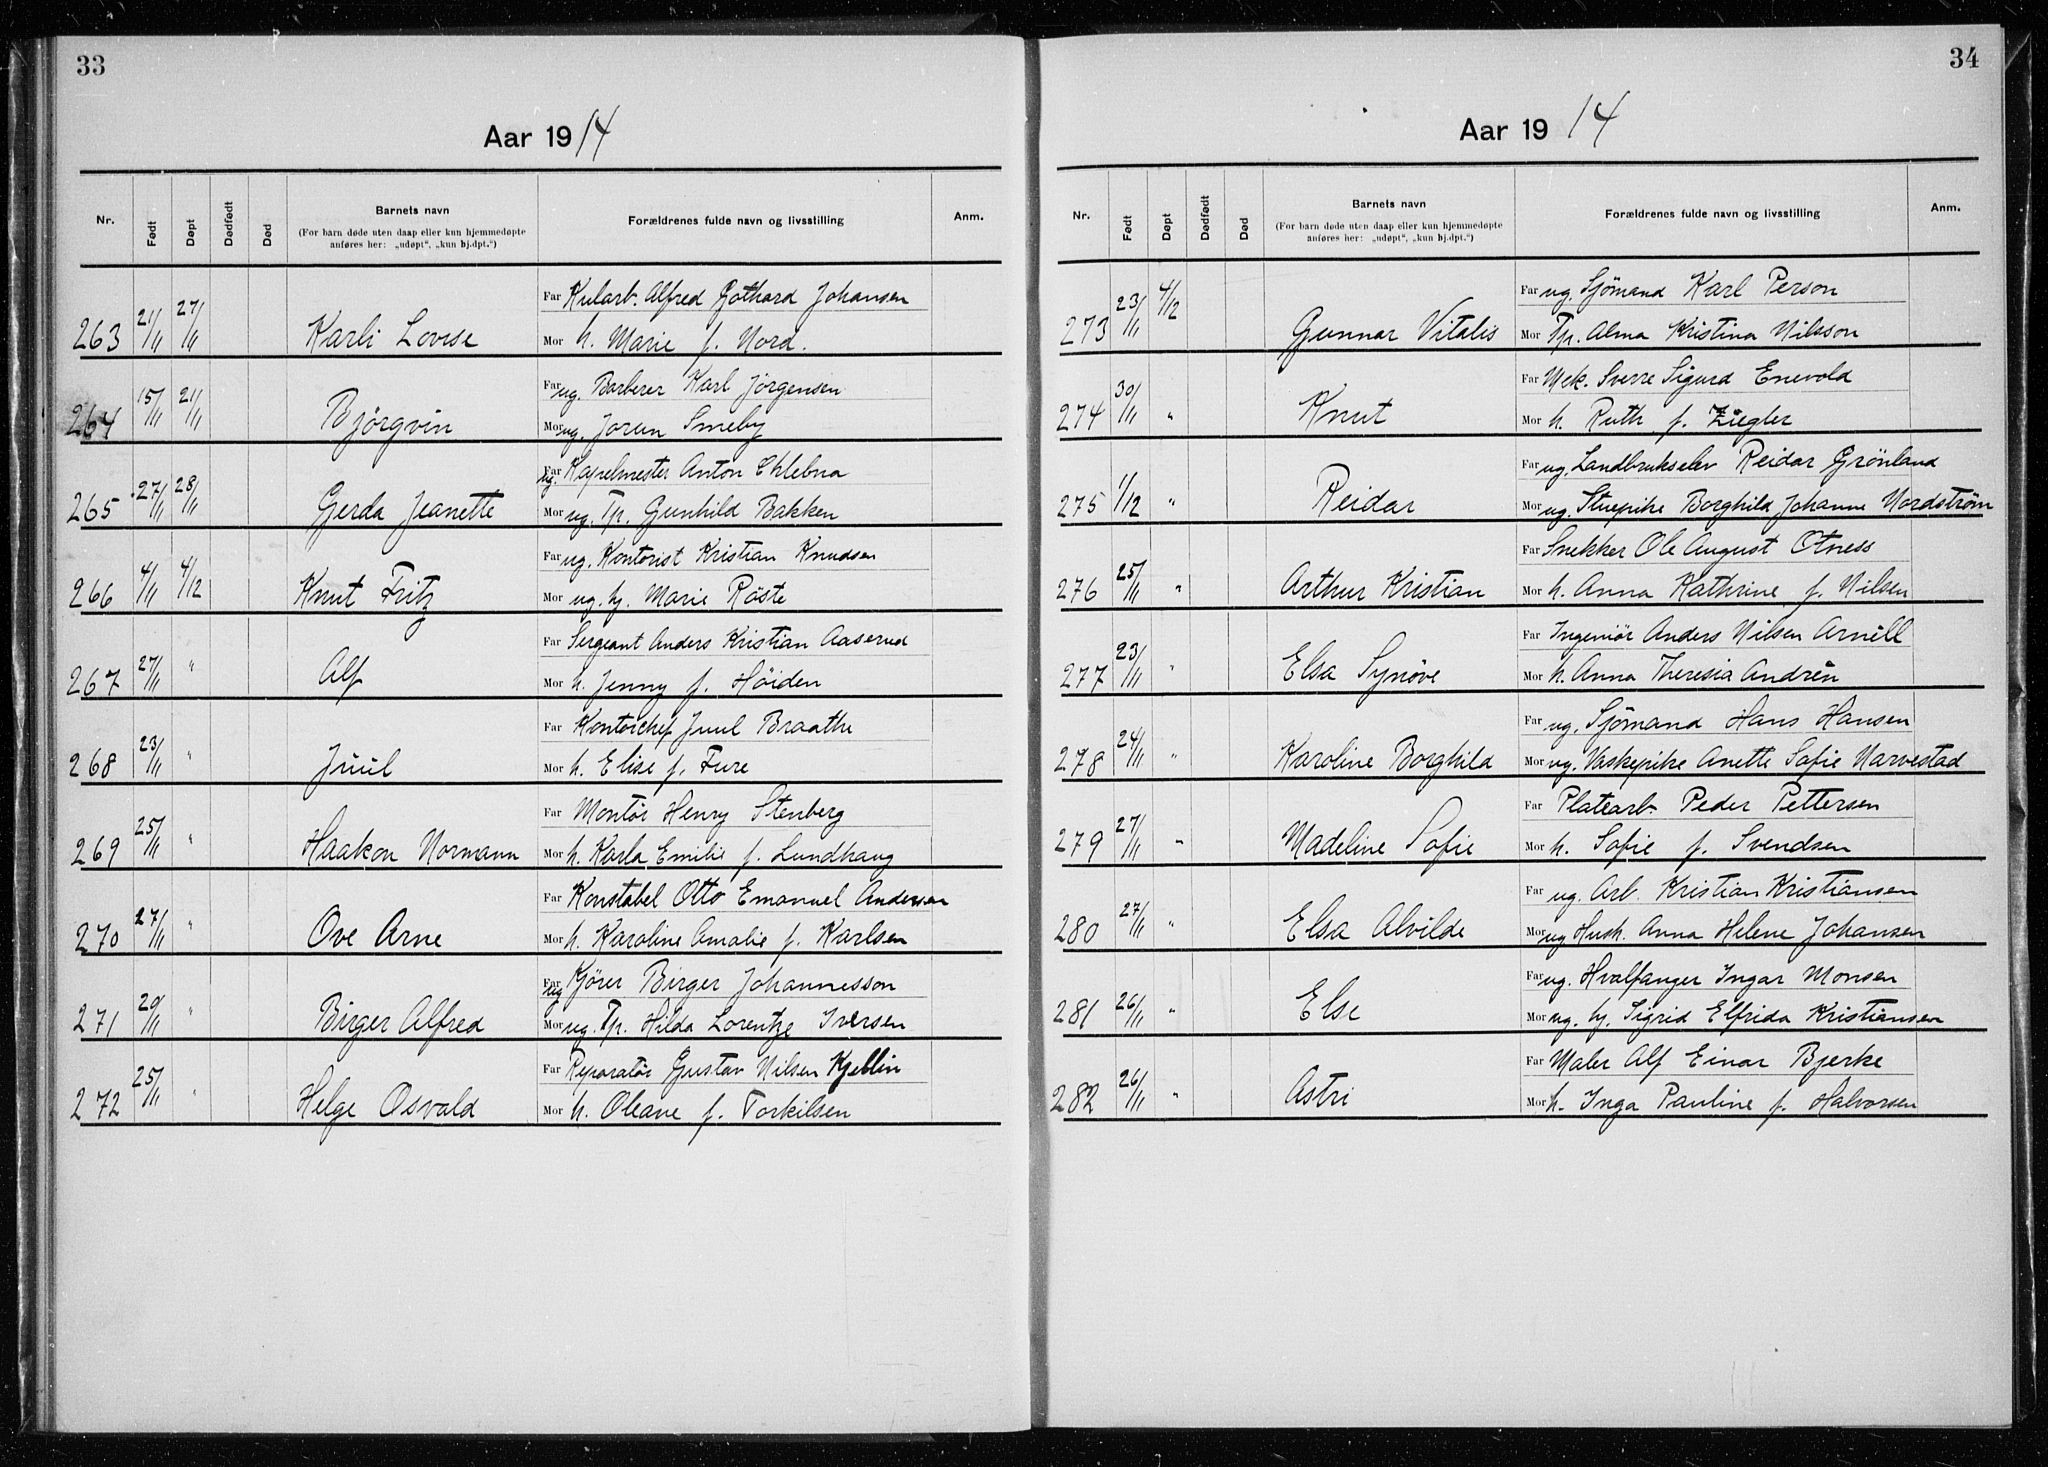 33
Aar 1914
Nr. Født Døpt Dødfødt Død Barnets navn Forældrenes fulde navn og livsstilling Anm.
(For barn døde uten daap eller kun hjemmedøpte
anføres her: „udøpt“, „kun hj.dpt.“)
Far Kularb. Alfred Gothard Johansen
263 21/11 27/11 Karli Lovise Mor h. Marie f. Nord.
Far ug. Barberer Karl Jørgensen
264 15/11 21/11 Bjørgvin Mor ug. Jorun Smeby
Far ug. Kapelmester Anton Chlebna
265 27/11 28/11 Gerda Jeanette Mor ug. Tp. Gunhild Bakken
Far ug. Kontorist Kristian Knudsen
266 4/11 4/12 Knut Fritz Mor ug. hj. Marie Røste
Far Sergeant Anders Kristian Aaserud
267 27/11 " Alf Mor h. Jenny f. Høiden
Far Kontorchef Juul Braathe
268 23/11 " Juul Mor h. Elise f. Fure
Far Montør Henry Stenberg
269 25/11 " Haakon Normann Mor h. Karla Emilie f. Lundhaug
Far Konstabel Otto Emanuel Andersen
270 27/11 " Ove Arne Mor h. Karoline Amalie f. Karlsen
Far ug Kjører Birger Johannesson
271 20/11 " Birger Alfred Mor ug. Tp. Hilda Lorentze Iversen
Far Reparatør Gustav Nilsen Kjellin
272 25/11 " Helge Osvald Mor h. Oleane f. Torkilsen
34
Aar 1914
Nr. Født Døpt Dødfødt Død Barnets navn Forældrenes fulde navn og livsstilling Anm.
(For barn døde uten daap eller kun hjemmedøpte
anføres her: „udøpt“, „kun hj.dpt.“)
Far ug. Sjömand Karl Person
273 23/11 4/12 Gunnar Vitalis Mor Tp. Alma Kristina Nilsson
Far Mek. Sverre Sigurd Enevold
274 30/11 " Knut Mor h. Ruth f. Ziegler
Far ug. Landbrukselev Reidar Grönland
275 1/12 " Reidar Mor ug. Stuepike Borghild Johanne Nordström
Far Snekker Ole August Otness
276 25/11 " Arthur Kristian Mor h. Anna Kathrine f. Nilsen
Far Ingeniör Anders Nilsen Arnell
277 23/11 " Elsa Synøve Mor h. Anna Theresia Andrén
Far ug. Sjömand Hans Hansen
278 24/11 " Karoline Borghild Mor ug. Vaskepike Anette Sofie Narvestad
Far Platearb. Peder Pettersen
279 27/11 " Madeline Sofie Mor h. Sofie f. Svendsen
Far ug. Arb. Kristian Kristiansen
280 27/11 " Elsa Alvilde Mor ug Hush. Anna Helene Johansen
Far ug. Hvalfanger Ingar Monsen
281 26/11 " Else Mor ug. hj. Sigrid Elfrida Kristiansen
Far Maler Alf Einar Bjerke
282 26/11 " Astri Mor h. Inga Pauline f. Halvorsen